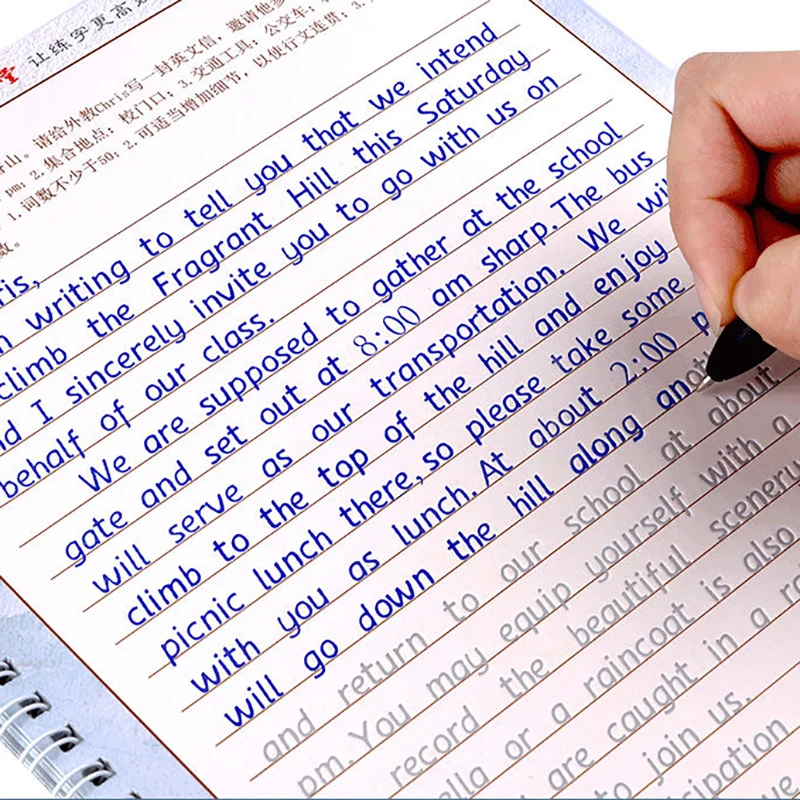 让练字更高效
香山。请给外教Chris写一封英文信，邀请他参
pm; 2. 集合地点：校门口；3. 交通工具：公交车；
1. 词数不少于50; 2. 可适当增加细节，以使行文连贯；3.
数。
ris,
writing to tell you that we intend
climb the Fragrant Hill this Saturday
nd I sincerely invite you to go with us on
behalf of our class.
We are supposed to gather at the school
gate and set out at 8:00 am sharp. The bus
will serve as our transportation. We wil
climb to the top of the hill and enjoy
picnic lunch there, so please take some
with you as lunch. At about 2:00 p
will go down the hill along ano
and return to our school at about
pm. You may equip yourself with a
record the beautiful scenery
ella or a raincoat is also
are caught in a ra
to join us.
cipation